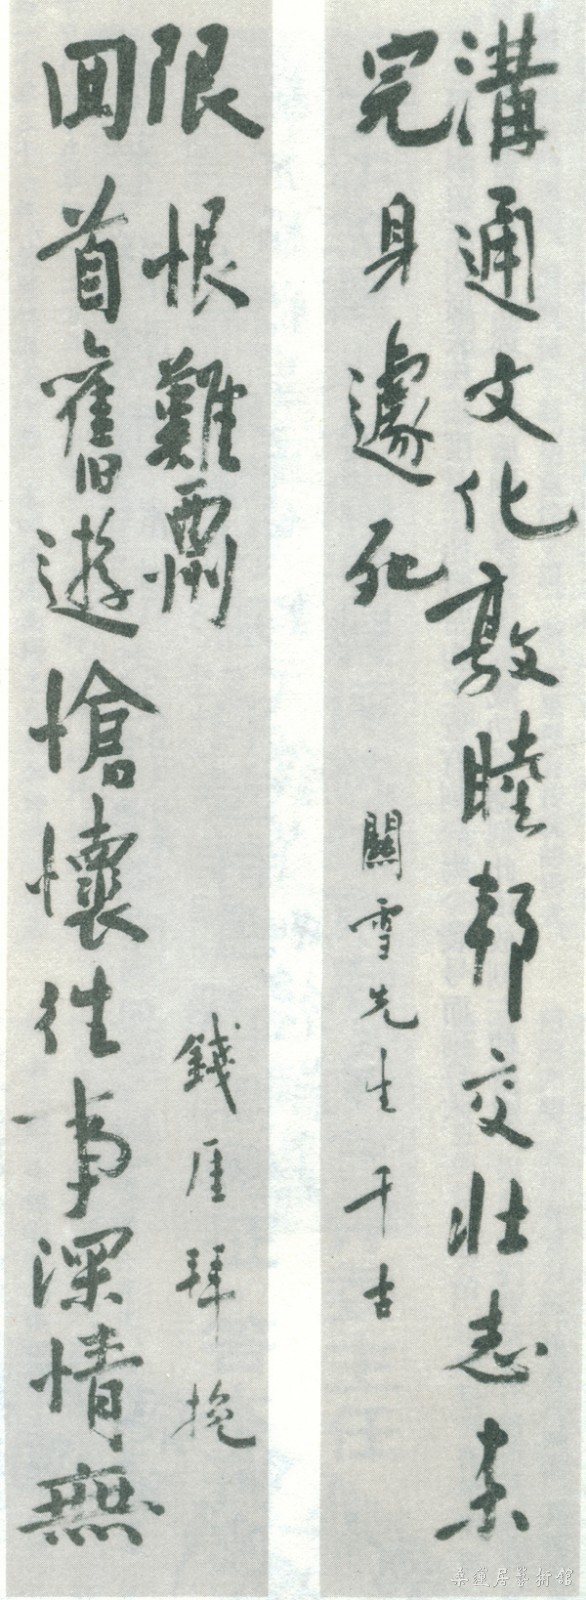 溝通文化敦睦邦交壯志未
完身遽死
關雪先生千古
囬首舊遊愴懷往事深情無
限恨難酬
錢厓拜挽
桑蓮居藝術館